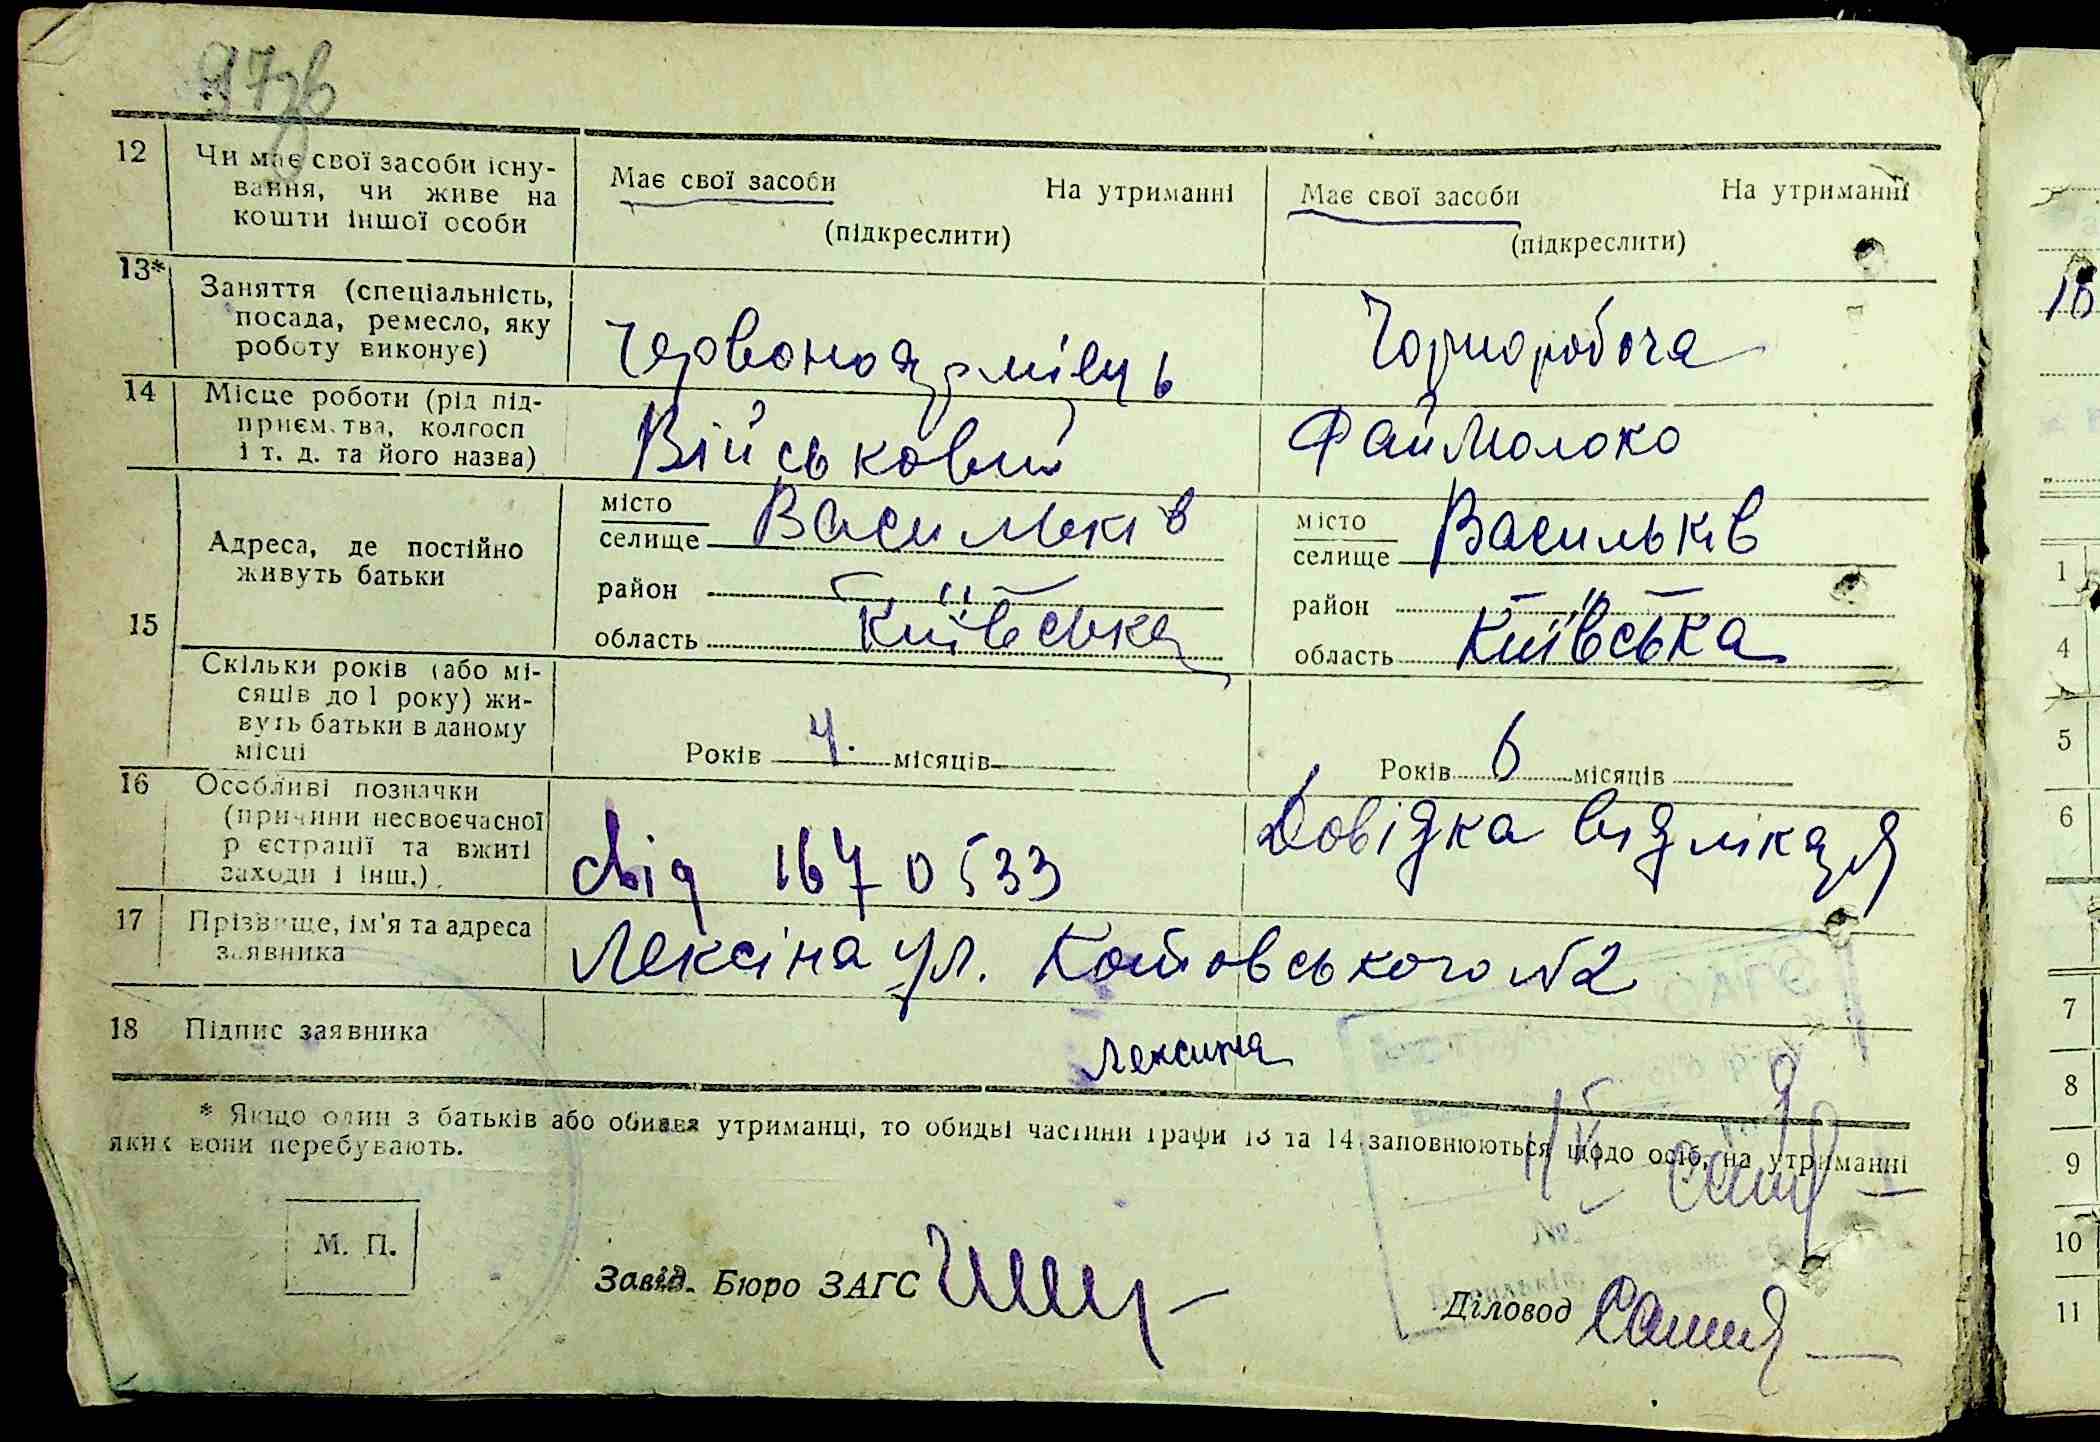 97зв
12 Чи має свої засоби існу-
вання, чи живе на
кошти іншої особи
Має свої засоби На утриманні
(підкреслити)
Має свої засоби На утриманні
(підкреслити)
13* Заняття (спеціальність,
посада, ремесло, яку
роботу виконує)
Червоноармієць
Чорноробоча
14 Місце роботи (рід під-
приємства, колгосп
і т. д. та його назва)
Військовий
Файмолоко
15 Адреса, де постійно
живуть батьки
місто
селище Васильків
район
область Київська
місто
селище Васильків
район
область Київська
Скільки років (або мі-
сяців до 1 року) жи-
вуть батьки в даному
місці
Років 4. місяців
Років 6 місяців
16 Особливі позначки
(причини несвоєчасної
реєстрації та вжиті
заходи і інш.)
свід 1670533
Довідка від лікаря
17 Прізвище, ім'я та адреса
заявника
Лексіна ул. Котовського №2
18 Підпис заявника
Лексина
* Якщо один з батьків або обидва утриманці, то обидві частини графи 13 та 14 заповнюються щодо осіб, на утриманні
яких вони перебувають.
М. П.
Завід. Бюро ЗАГС
Діловод
18
1
4
5
6
7
8
9
10
11